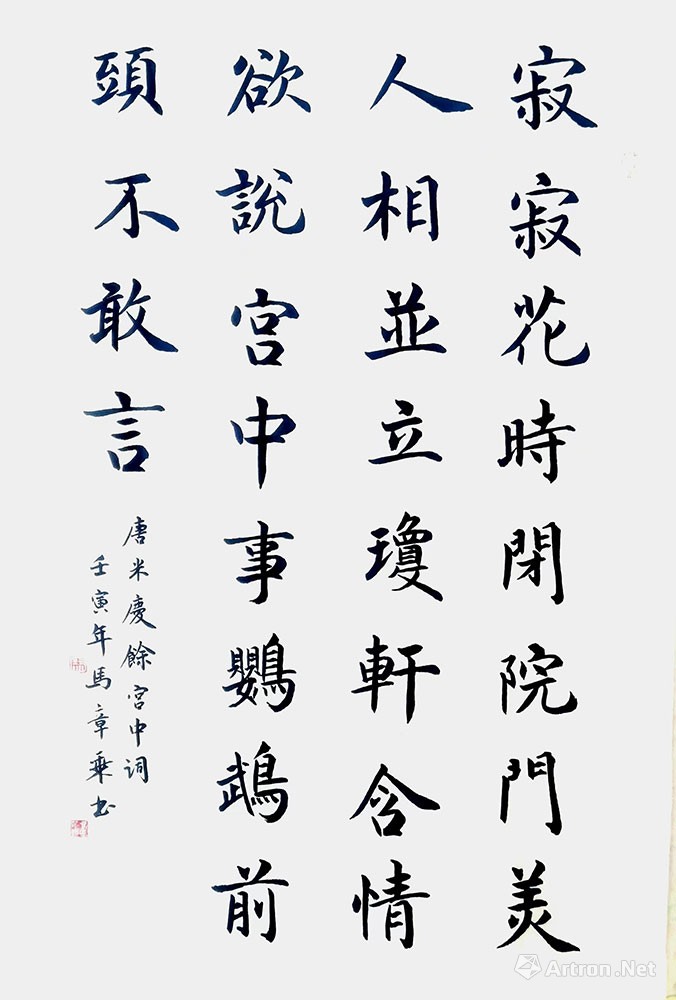 寂寂花時閉院門美
人相並立瓊軒含情
欲說宮中事鸚鵡前
頭不敢言
唐米慶餘宮中词
壬寅年馬章乘书
Artron.Net